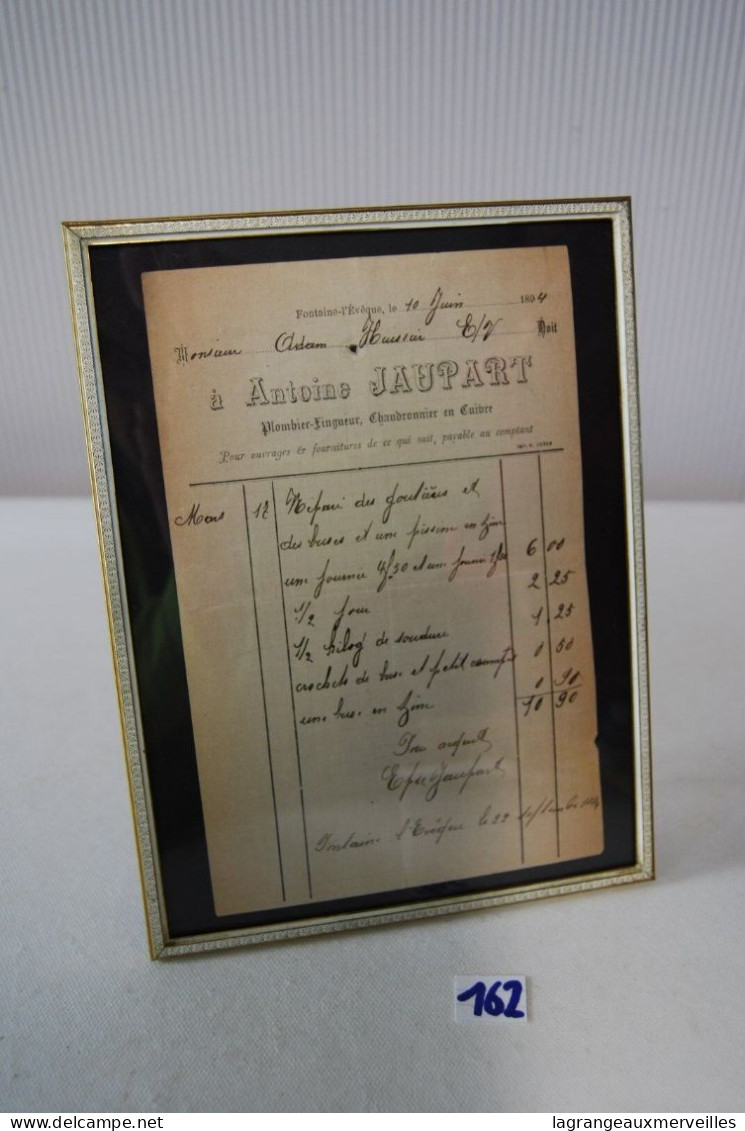 Fontaine-l'Évêque, le 10 Juin 1894
Monsieur Adam E/V Doit
à Antoine JAUPART
Plombier-Zingueur, Chaudronnier en Cuivre
Pour ouvrages & fournitures de ce qui suit, payable au comptant
Mars 12 Réparé des goutières et
des buses et un pisson en zinc
une journée 4f,50 et une journée 6 00
1/2 jour 2 25
1/2 kilog de soudure 1,25
crochets de buse et petit 0 50
une buse en zinc 0 90
10 90
Pour acquit
Jaupart
Fontaine l'Evêque le 22 septembre
162
delcampe.net
lagrangeauxmerveilles